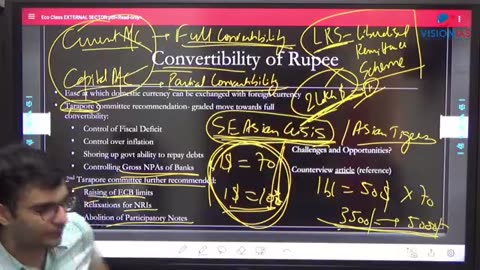 Eco Class EXTERNAL SECTOR
VISION IAS
Current A/c → Full Convertibility
LRS = Liberalised
Remittance
Scheme
Convertibility of Rupee
Capital A/c → Partial Convertibility
Ease at which domestic currency can be exchanged with foreign currency
Tarapore committee recommendation- graded move towards full
convertibility:
SE Asian Crisis / Asian Tigers
Control of Fiscal Deficit
Challenges and Opportunities?
Control over inflation
1$ = 70
Shoring up govt ability to repay debts
Counterview article (reference)
Controlling Gross NPAs of Banks
1bl = 50$ × 70
2nd Tarapore committee further recommended:
1$ = 100
Raising of ECB limits
3500/- → 5000/-
Relaxations for NRIs
Abolition of Participatory Notes